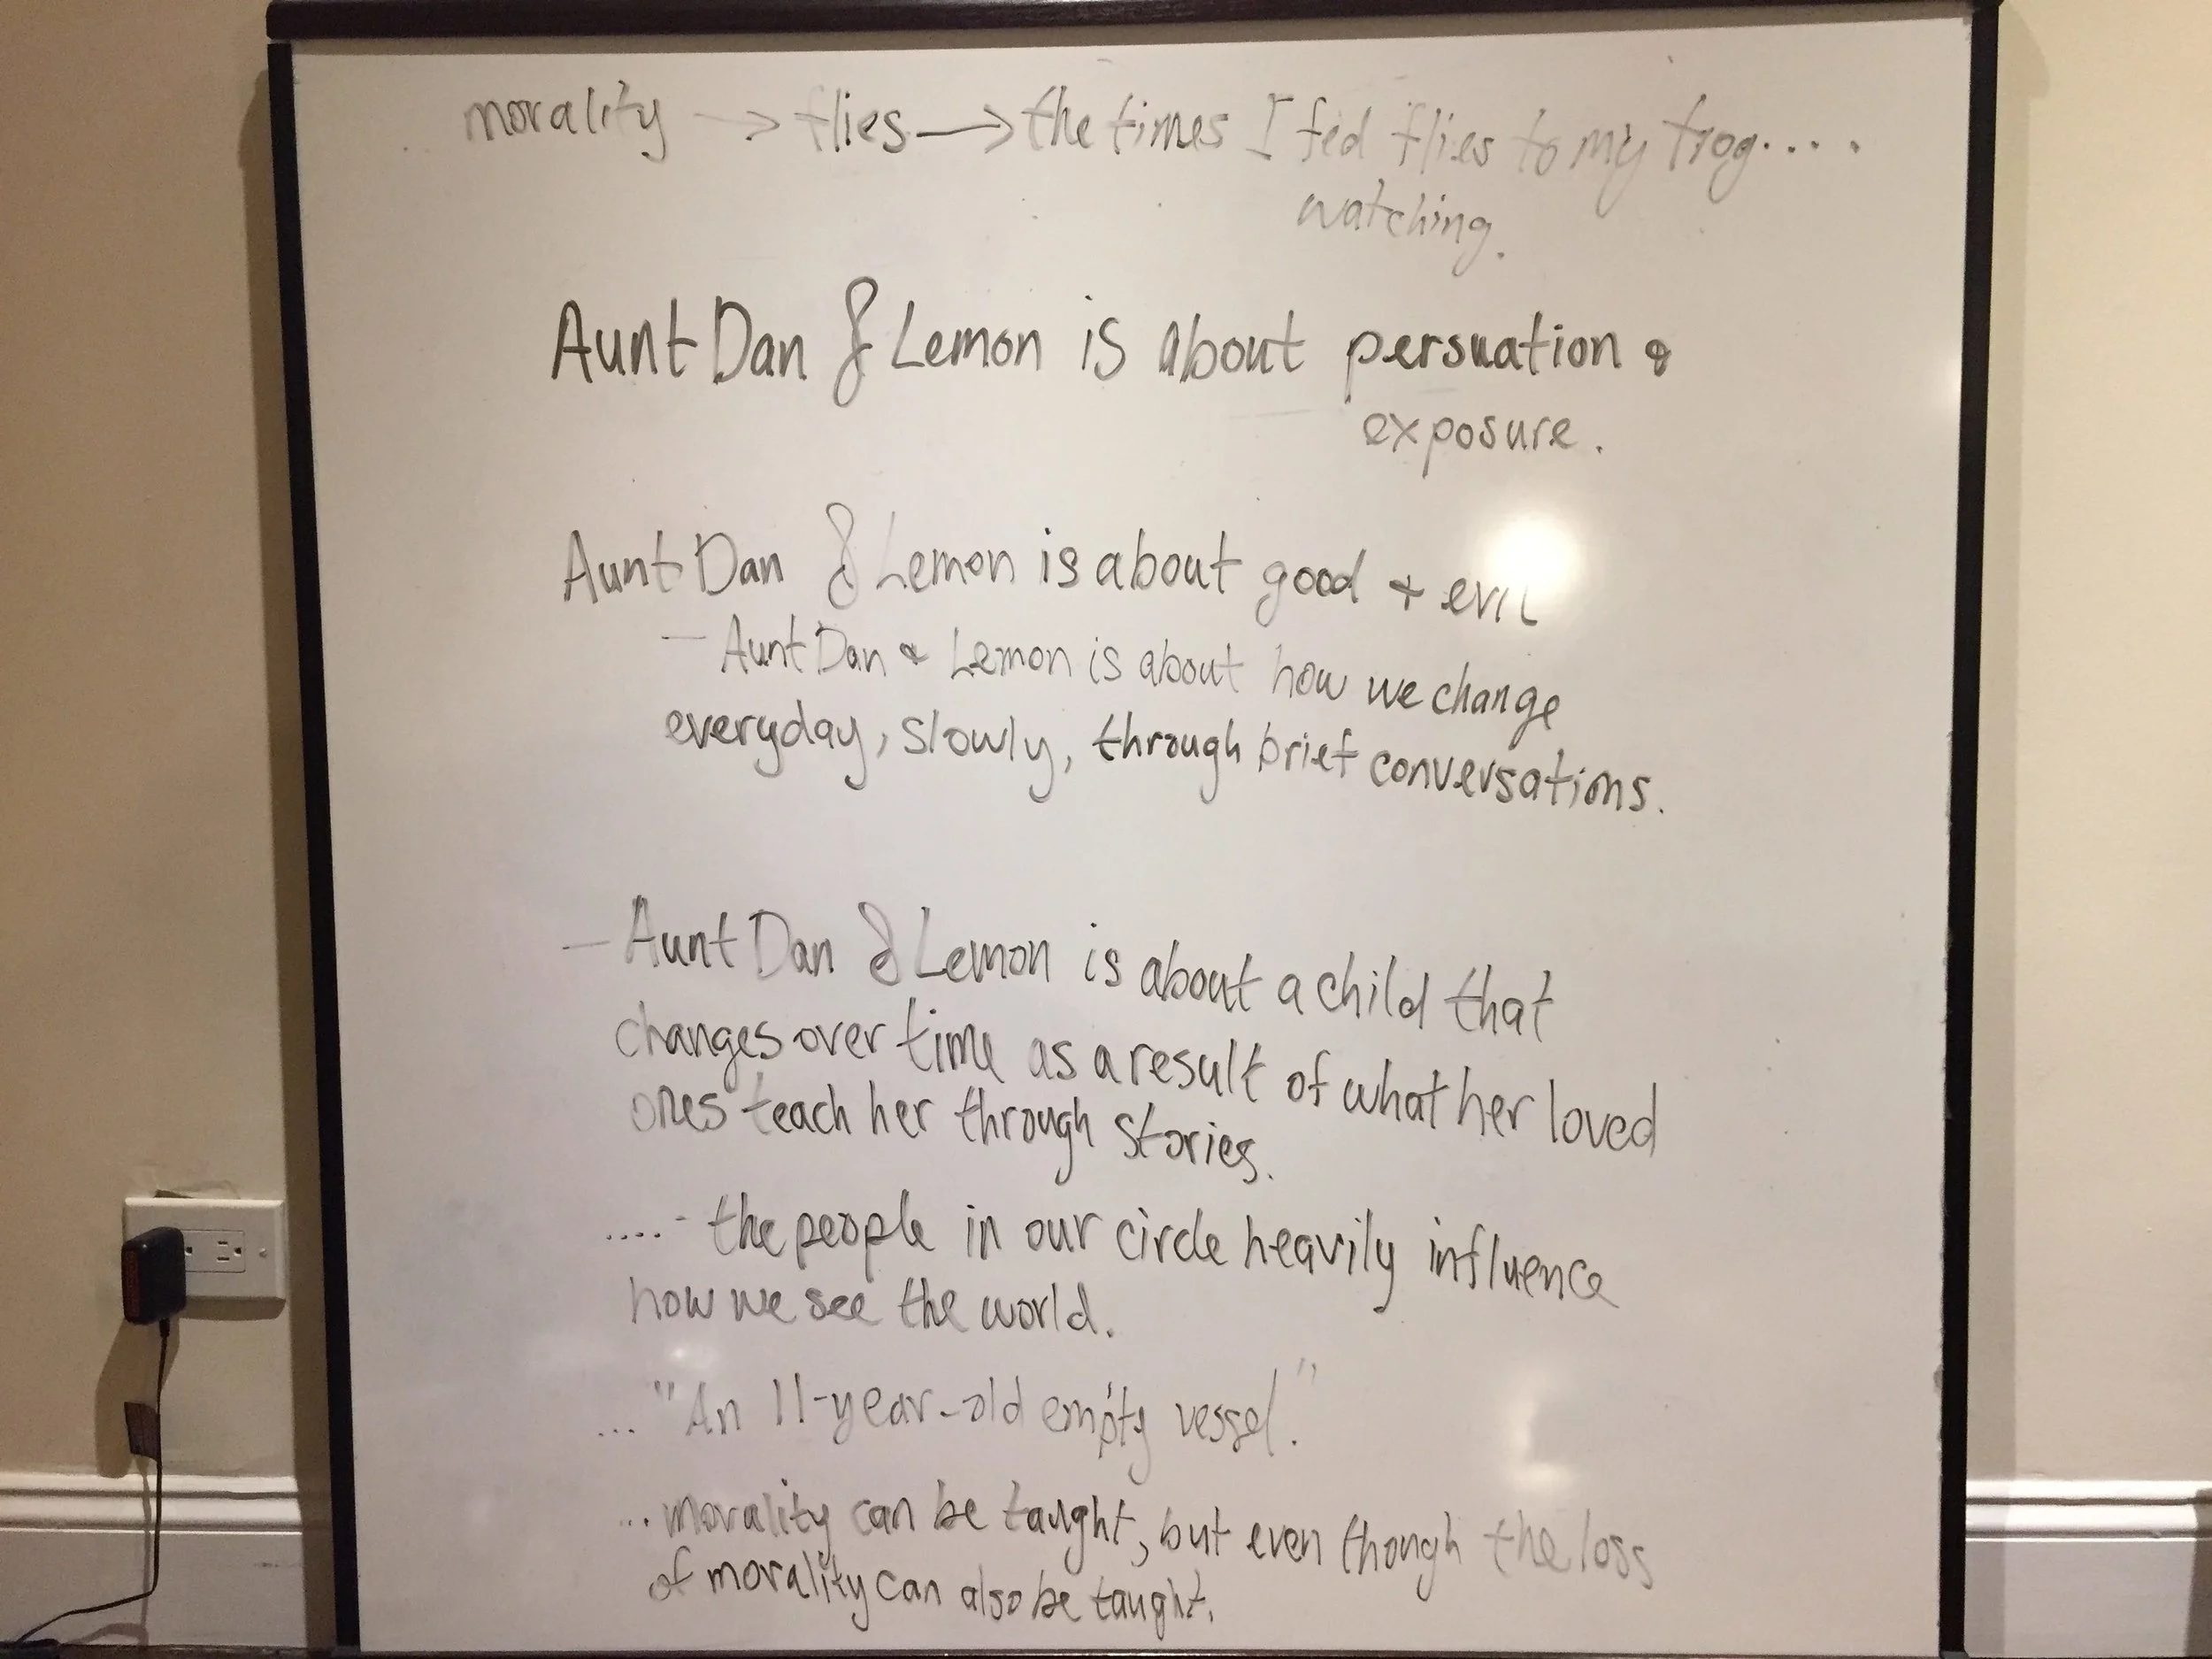 morality → flies → the times I fed flies to my frog.....
watching.
Aunt Dan & Lemon is about persuation &
exposure.
Aunt Dan & Lemon is about good + evil
— Aunt Dan & Lemon is about how we change
everyday, slowly, through brief conversations.
— Aunt Dan & Lemon is about a child that
changes over time as a result of what her loved
ones teach her through stories.
....- the people in our circle heavily influence
how we see the world.
... "An 11-year-old empty vessel."
... morality can be taught, but even though the loss
of morality can also be taught.